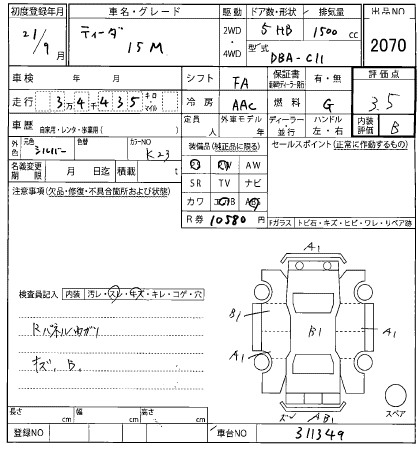 初度登録年月 車名・グレード 駆動 ドア数・形状 排気量 出品NO
21/9月 ティーダ 15M 2WD・4WD 5 HB 1500cc 2070
型式 DBA-C11
車検 年 月 シフト FA 保証書 有・無 評価点
走行 3万4千435 キロ・マイル 冷房 AAC 燃料 G 3.5
車歴 自家用・レンタ・事業用( ) 定員 人 外車モデル 年 ディーラー・並行 ハンドル 左・右 内装評価 B
外色 元色 シルバー 色替 カラーNO K23 装備品(純正品に限る) セールスポイント(正常に動作するもの)
名義変更期限 月 日迄 積載 t PS PW AW
SR TV ナビ
注意事項(欠品・修復・不具合箇所および状態) カワ エアB ABS
R券 10580円 Fガラス トビ石・キズ・ヒビ・ワレ・リペア跡
A1
検査員記入 内装 汚レ・スレ・キズ・キレ・コゲ・穴
B1 B1 A1
Rパネルマガリ
A1
キズ、B。
スペア
長さ cm 幅 cm 高さ cm AB1
登録NO 車台NO 311349